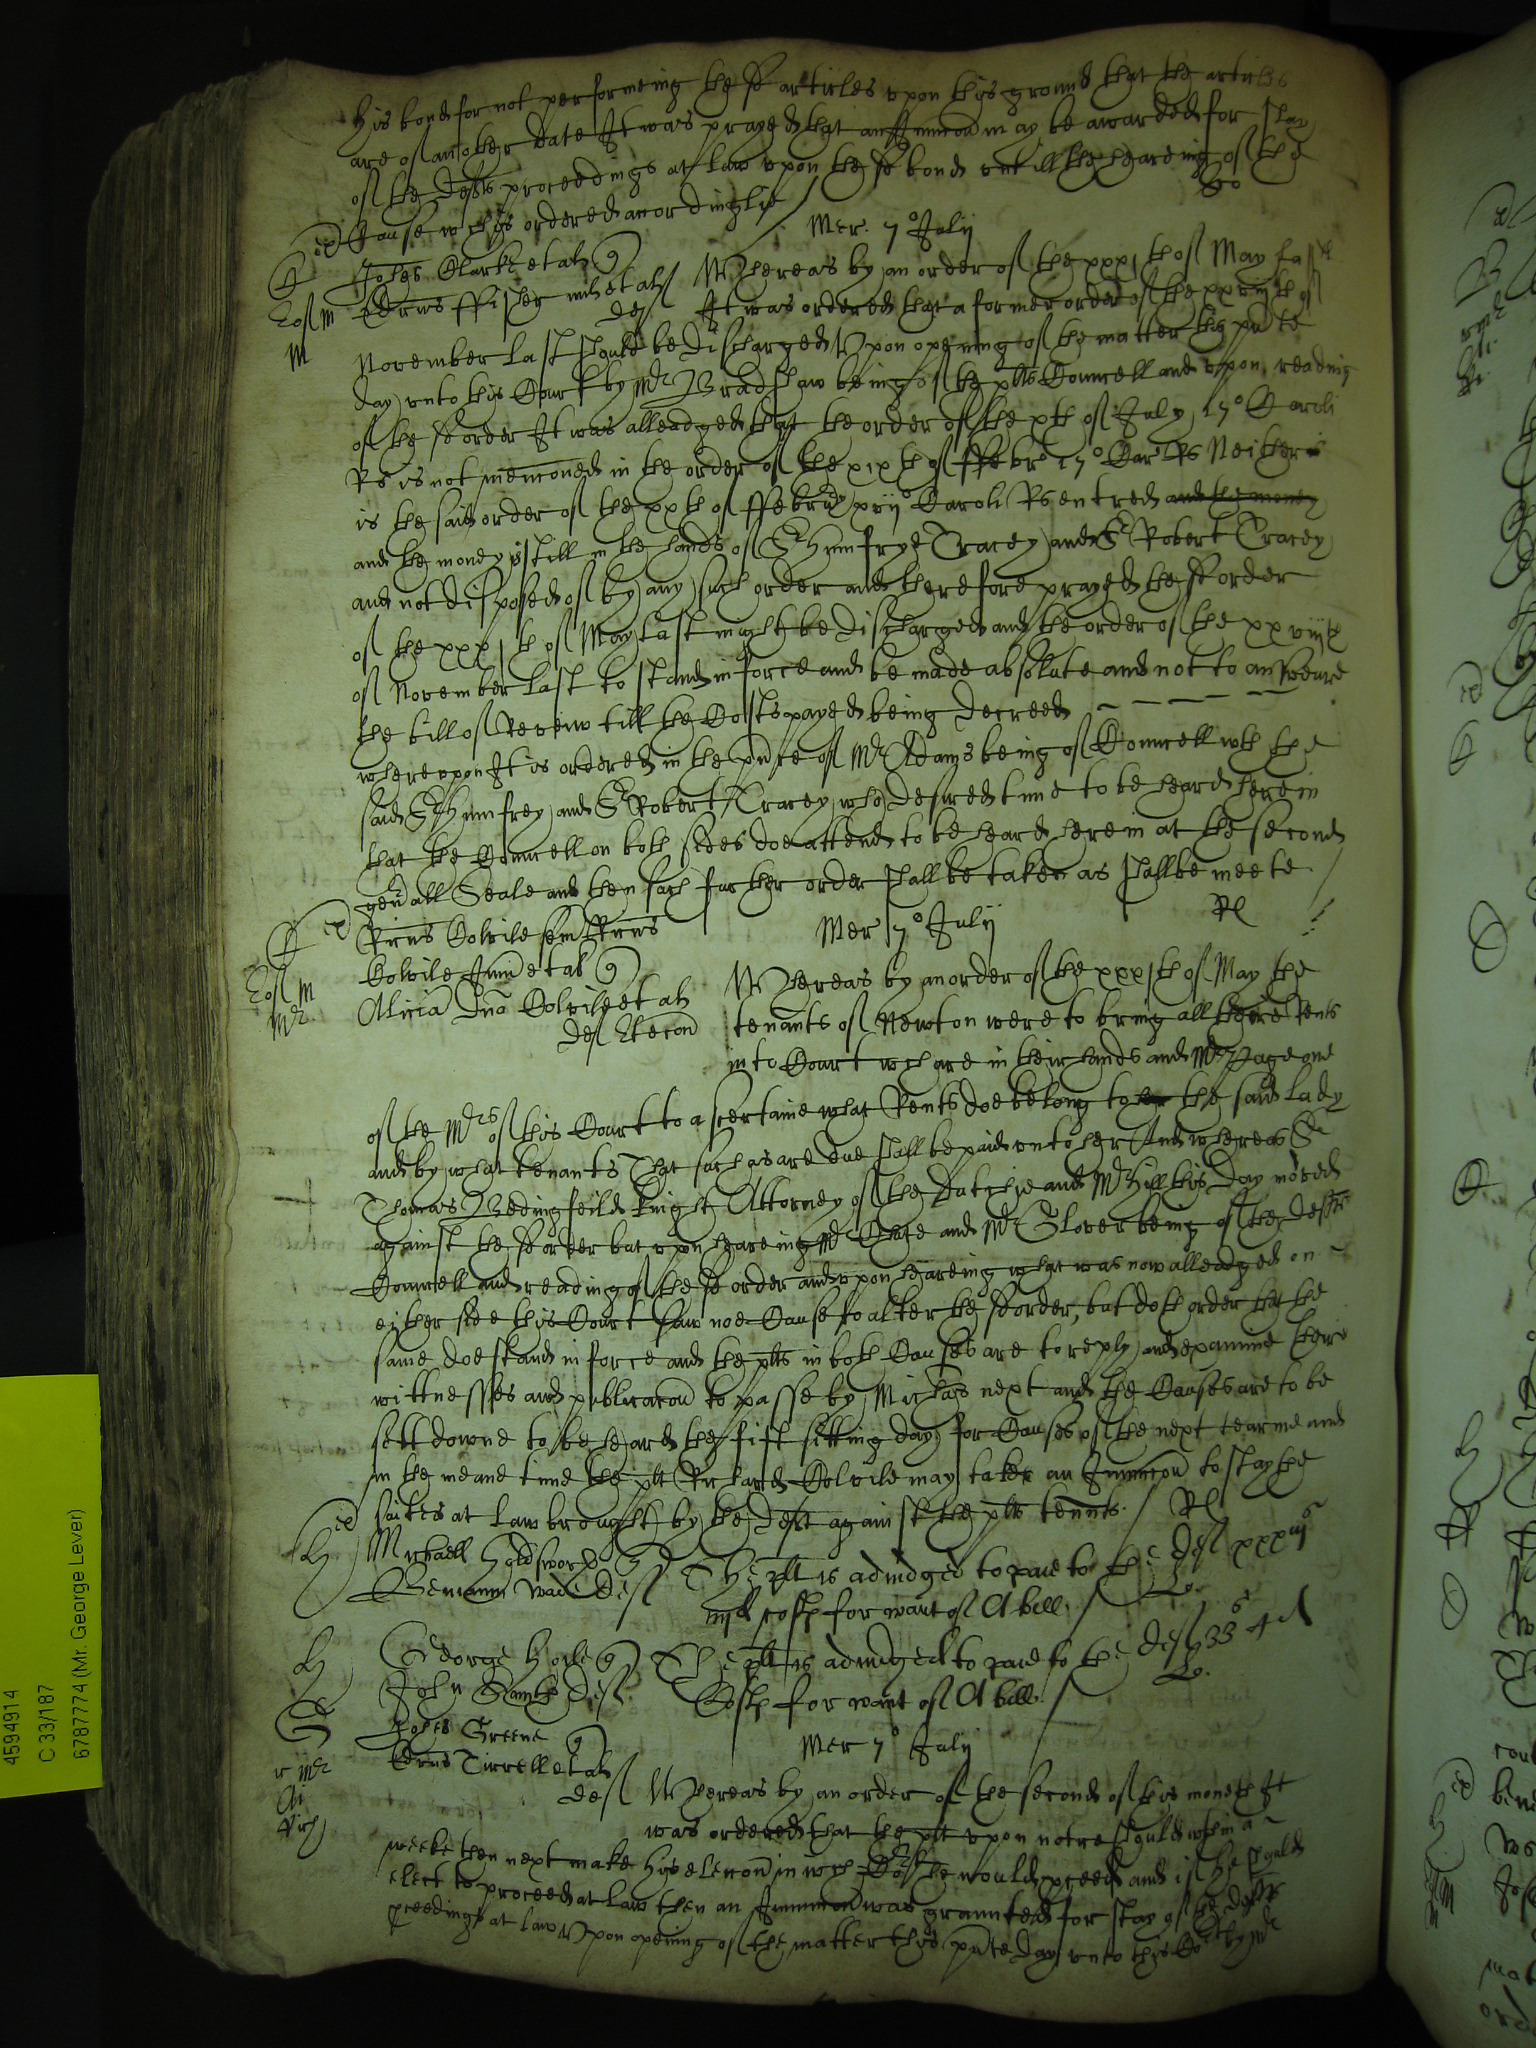 his bond for not performeing the sd articles upon this ground that the articles
are of another date It was prayed that an Iniuncon may be awarded for stay
of the defts proceedings at law upon the sd bond untill the heareing of the
Cause wch is ordered accordinglie
Mer. 7° Julij
Johes Clarke et al
Edrus ffisher et al def
Whereas by an order of the xxxth of May last
It was ordered that a former order of the xxviijth of
November last should be discharged Upon opening of the matter this pnte
day unto this Court by Mr Bradshaw being of the plts Councell and upon reading
of the sd order It was alleadged that the order of the xth of July 17° Caroli
Rs is not mencioned in the order of the xixth of ffebr 17° Car Rs Neither
is the said order of the xxth of ffebry xvij° Caroli Rs entred and the money
and the money is still in the hands of Sr Humfrye Tracey and Sr Robert Tracey
and not disposed of by any such order and therefore prayed the sd order
of the xxxth of May last might be discharged and the order of the xxviijth
of November last to stand in force and be made absolute and not to answeare
the bill of Review till the Costs payed being decreed
whereupon It is ordered in the pnce of Mr Adams being of Councell wth the
said Sr Humfrey and Sr Robert Tracey who desired time to be heard herein
that the Councell on both sides doe attend to be heard herein at the second
genall Seale and then such further order shall be taken as shall be meete
Ricus Colvile sen Ricus
Mer 7° Julij
Colvile Iun et al
Alicia Dna Colvile et al
def Et e con
Whereas by an order of the xxxth of May the
tenants of Newton were to bring all theire Rents
into Court wch are in their hands and Mr Page one
of the Mrs of this Court to ascertaine what Rents doe belong to her the said Lady
and by what tenants That such as are due shall be paid unto her And whereas Sr
Thomas Bedingfeild knight Attorney of the Dutchie and Mr Hill this day moved
against the sd order but upon heareing Mr and Mr Glover being of the defts
Councell and reading of the sd order and upon heareing what was now alleadged on
either side this Court saw noe Cause to alter the sd order, but doth order that the
same doe stand in force and the plts in both Causes are to reply and examine their
wittnesses and publicacon to passe by Michas next and the Causes are to be
sett downe to be heard the fift sitting day for Causes of the next tearme and
in the meane time the plt Richard Colvile may take an Iniuncon to stay the
suites at law brought by the deft against the plts tennts.
Michaell Holdsworth
Beniamin Wade def
The plt is adiudged to paie to the def xxxiijs
iiijd costs for want of A bill
George Hoile
John def
The plt is adiudged to paie to the def 33s 4d
Costs for want of A bill
Johes Greene
Mer 7° Julij
Edrus Tirrell et al
def
Whereas by an order of the second of this moneth It
was ordered that the plt upon notice should wthin a
weeke then next make his eleccon in wch Cort he would proceed and if he should
elect to proceed at law then an Iniuncon was graunted for stay of the defts
pceedings at law Upon opening of the matter this pnte day unto this Cort by Mr
4594914
C 33/187
6787774 (Mr. George Lever)